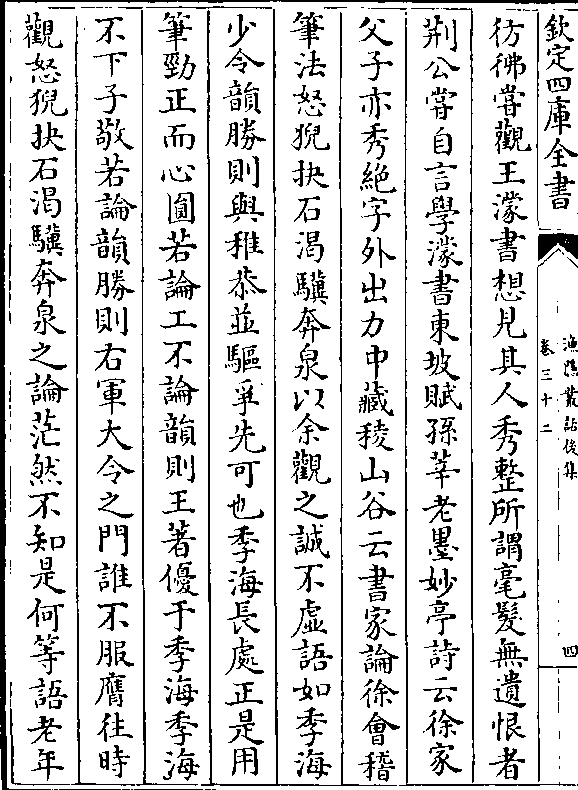 欽定四庫全書
漁隱叢話後集
卷三十二
四
彷彿嘗觀王濛書想見其人秀整所謂毫髮無遺恨者
荆公嘗自言學濛書東坡賦孫莘老墨妙亭詩云徐家
父子亦秀絶字外出力中藏稜山谷云書家論徐會稽
筆法怒猊抉石渴驥奔泉以余觀之誠不虛語如季海
少令韻勝則與稚恭並驅爭先可也季海長處正是用
筆勁正而心圓若論工不論韻則王著優于季海季海
不下子敬若論韻勝則右軍大令之門誰不服膺往時
觀怒猊抉石渴驥奔泉之論茫然不知是何等語老年